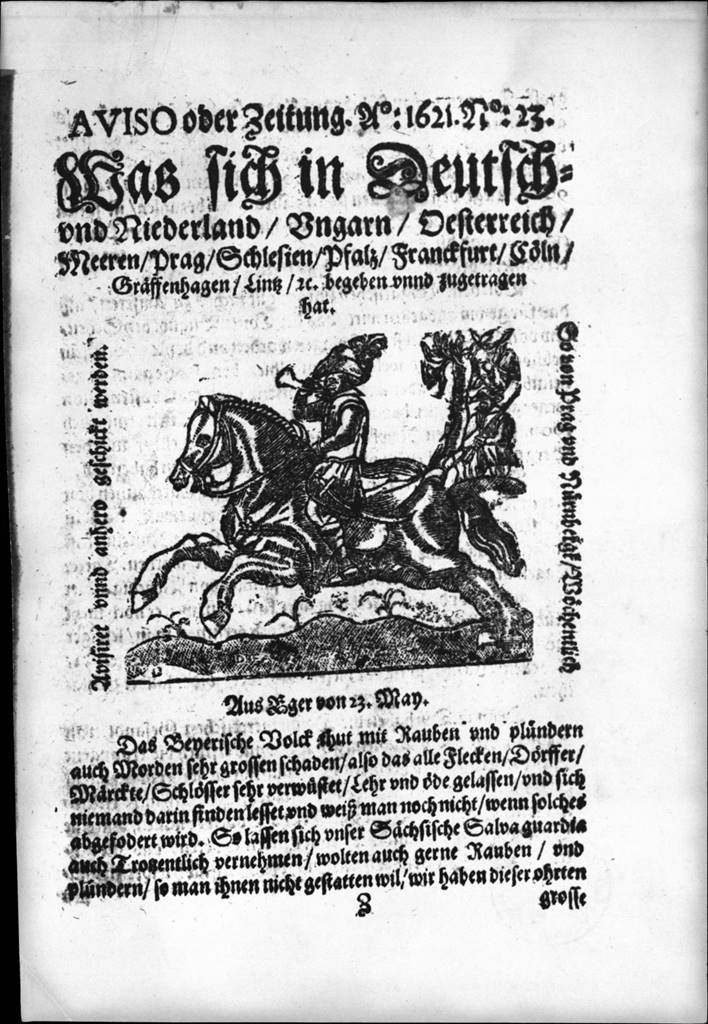 AVISO oder Zeitung. Aº: 1621. Nº: 23.
Was sich in Deutsch-
vnd Niederland/ Vngarn/ Oesterreich/
Meeren/Prag/Schlesien/Pfalz/Franckfurt/Cöln/
Gräffenhagen/Lintz/ ꝛc. begeben vnnd zugetragen
hat.
Avisiret vnnd anhero geschickt werden.
So von Prag vnd Nürenbergk/Wöchentlich
Aus Eger von 23. May.
Das Beyerische Volck thut mit Rauben vnd plündern
auch Morden sehr grossen schaden/also das alle Flecken/Dörffer/
Märckte/Schlösser sehr verwüstet/Lehr vnd öde gelassen/vnd sich
niemand darin finden lesset vnd weiß man noch nicht/wenn solches
abgefodert wird. So lassen sich vnser Sächsische Salva guardia
auch Trotzentlich vernehmen/ wolten auch gerne Rauben / vnd
plündern/ so man ihnen nicht gestatten wil/ wir haben dieser ohrten
grosse